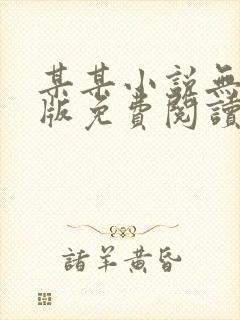 某某小説無
版免費閱讀
諸羊黄昏